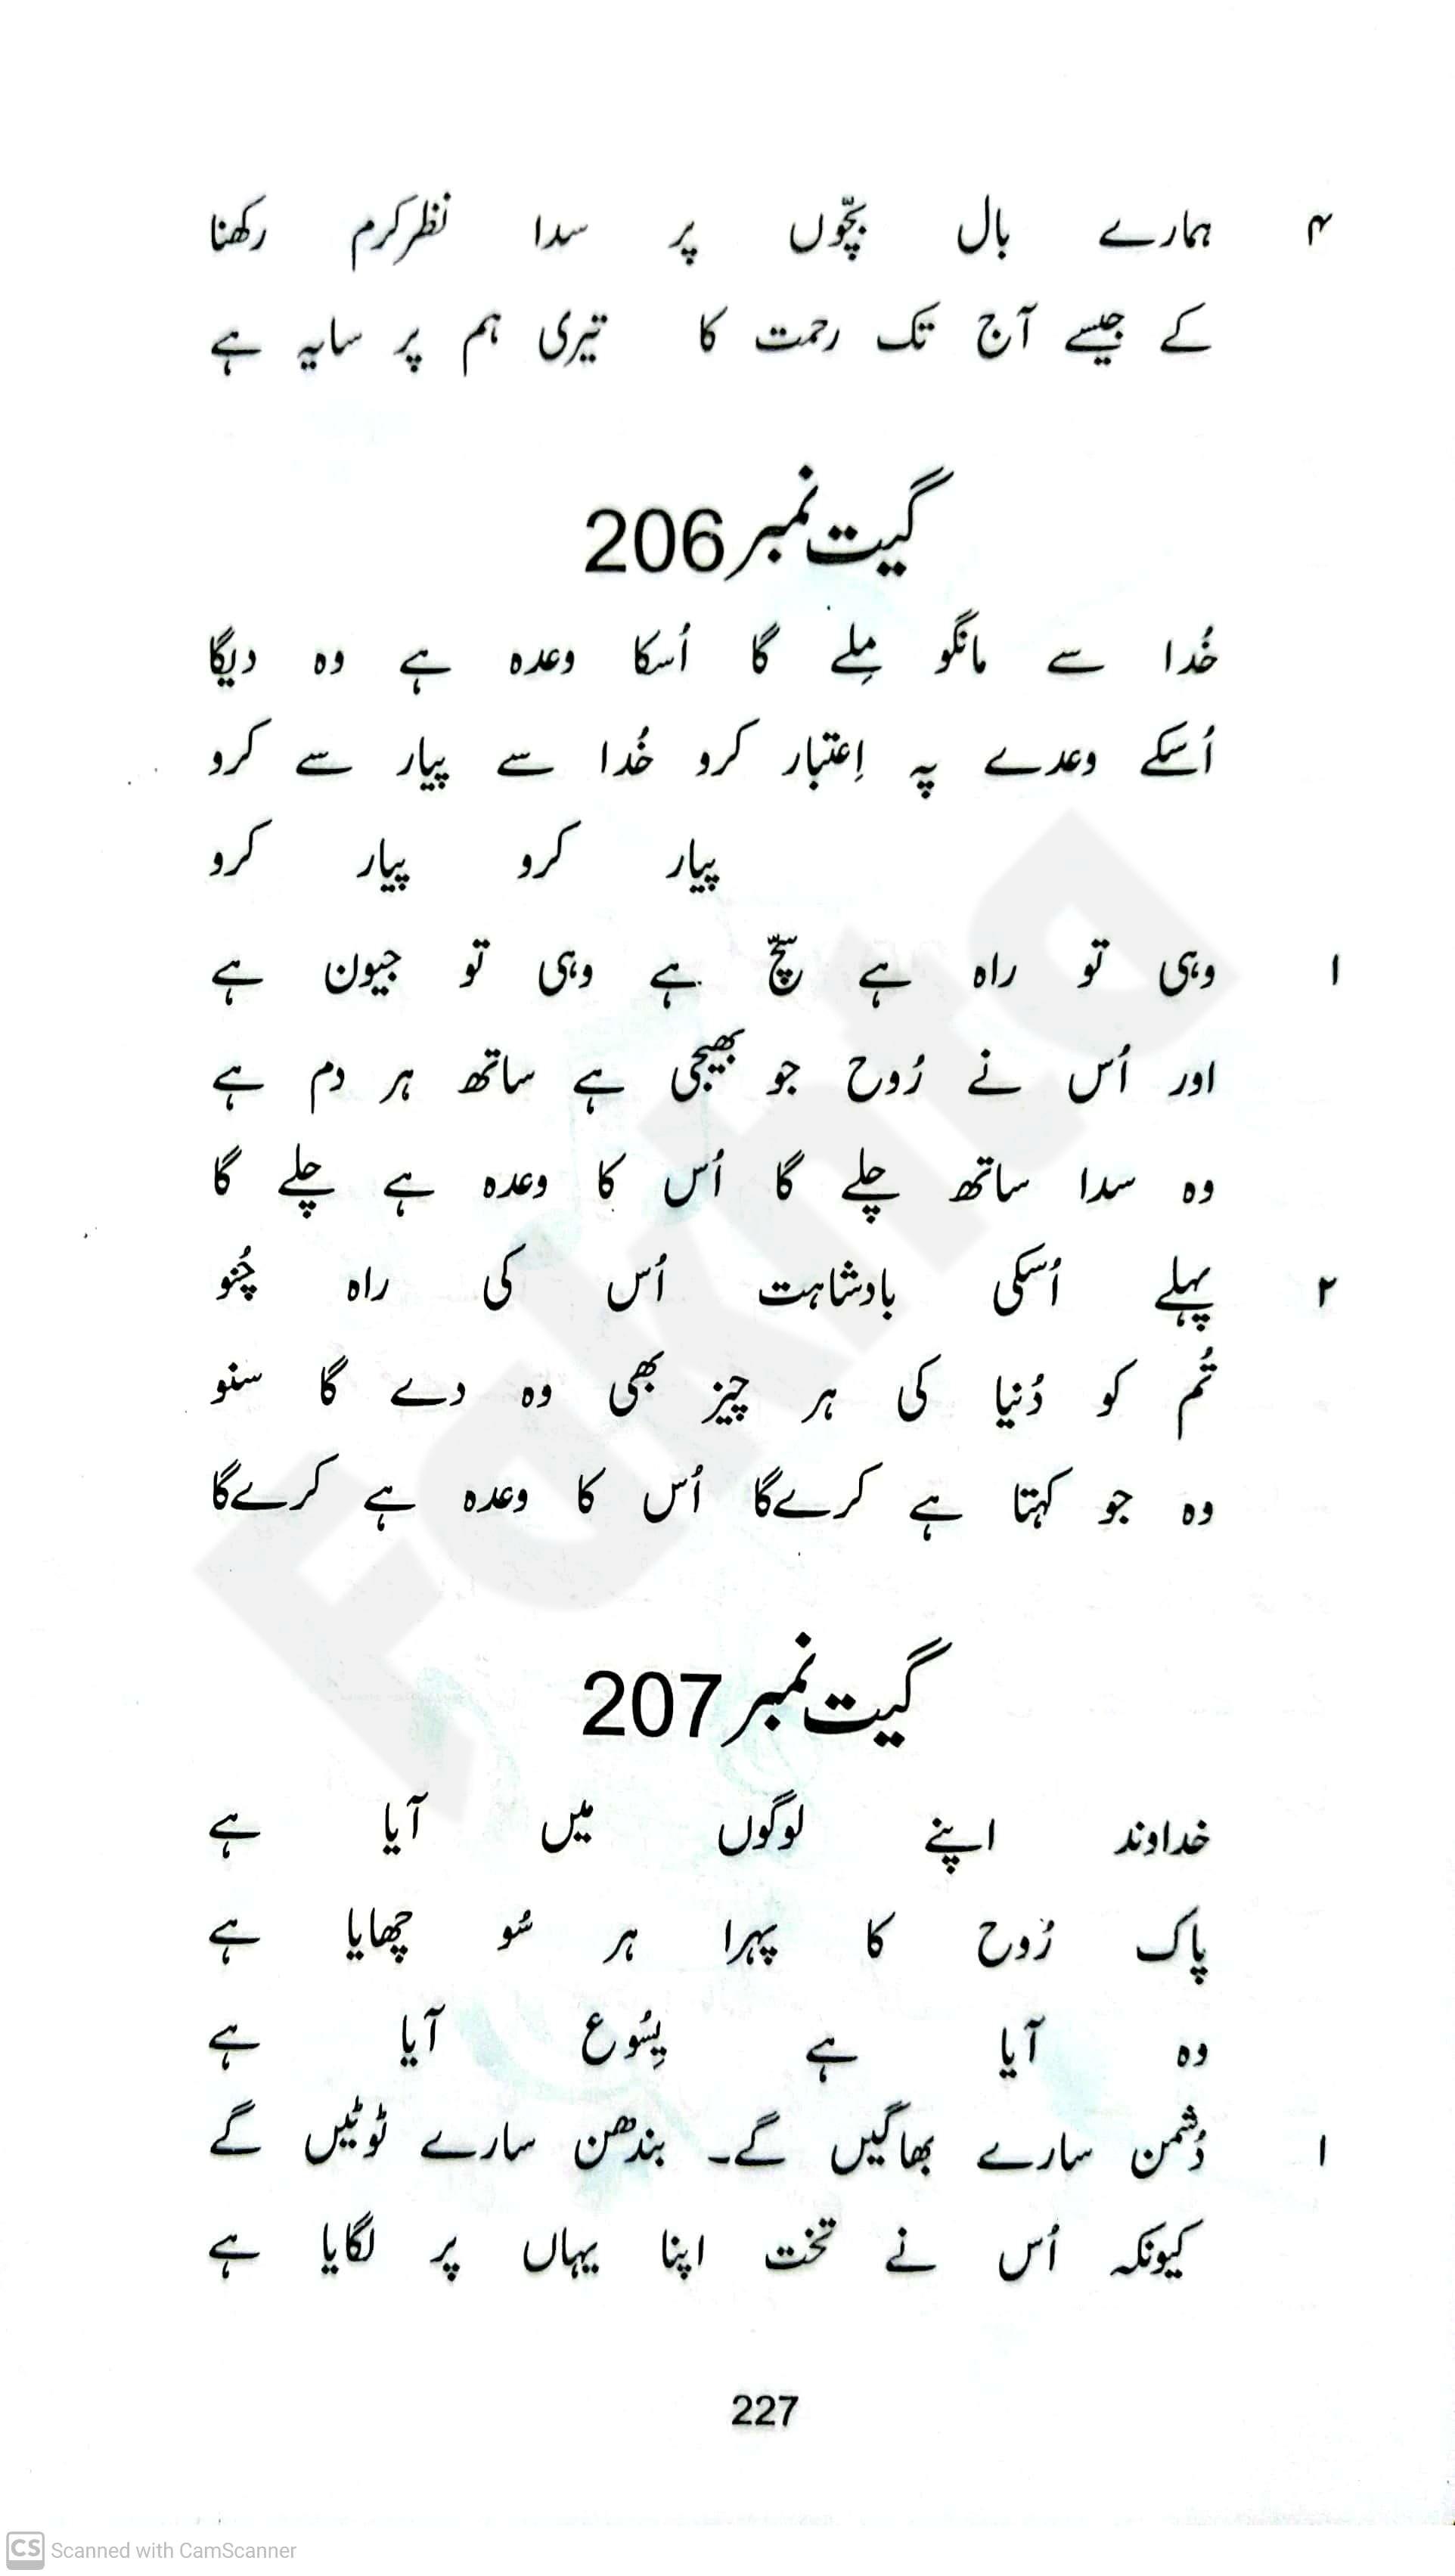 ۴ ہمارے بال بچّوں پر سدا نظرِکرم رکھنا
کے جیسے آج تک رحمت کا تیری ہم پر سایہ ہے
گیت نمبر 206
خُدا سے مانگو مِلے گا اُسکا وعدہ ہے وہ دیگا
اُسکے وعدے پہ اِعتبار کرو خُدا سے پیار سے کرو
پیار کرو پیار کرو
۱ وہی تو راہ ہے سچّ ہے وہی تو جیون ہے
اور اُس نے رُوح جو بھیجی ہے ساتھ ہر دم ہے
وہ سدا ساتھ چلے گا اُس کا وعدہ ہے چلے گا
۲ پہلے اُسکی بادشاہت اُس کی راہ چُنو
تُم کو دُنیا کی ہر چیز بھی وہ دے گا سنو
وہ جو کہتا ہے کرےگا اُس کا وعدہ ہے کرےگا
گیت نمبر 207
خداوند اپنے لوگوں میں آیا ہے
پاک رُوح کا پہرا ہر سُو چھایا ہے
وہ آیا ہے یِسُوع آیا ہے
۱ دُشمن سارے بھاگیں گے۔ بندھن سارے ٹوٹیں گے
کیونکہ اُس نے تخت اپنا یہاں پر لگایا ہے
227
Fakhta
CS Scanned with CamScanner